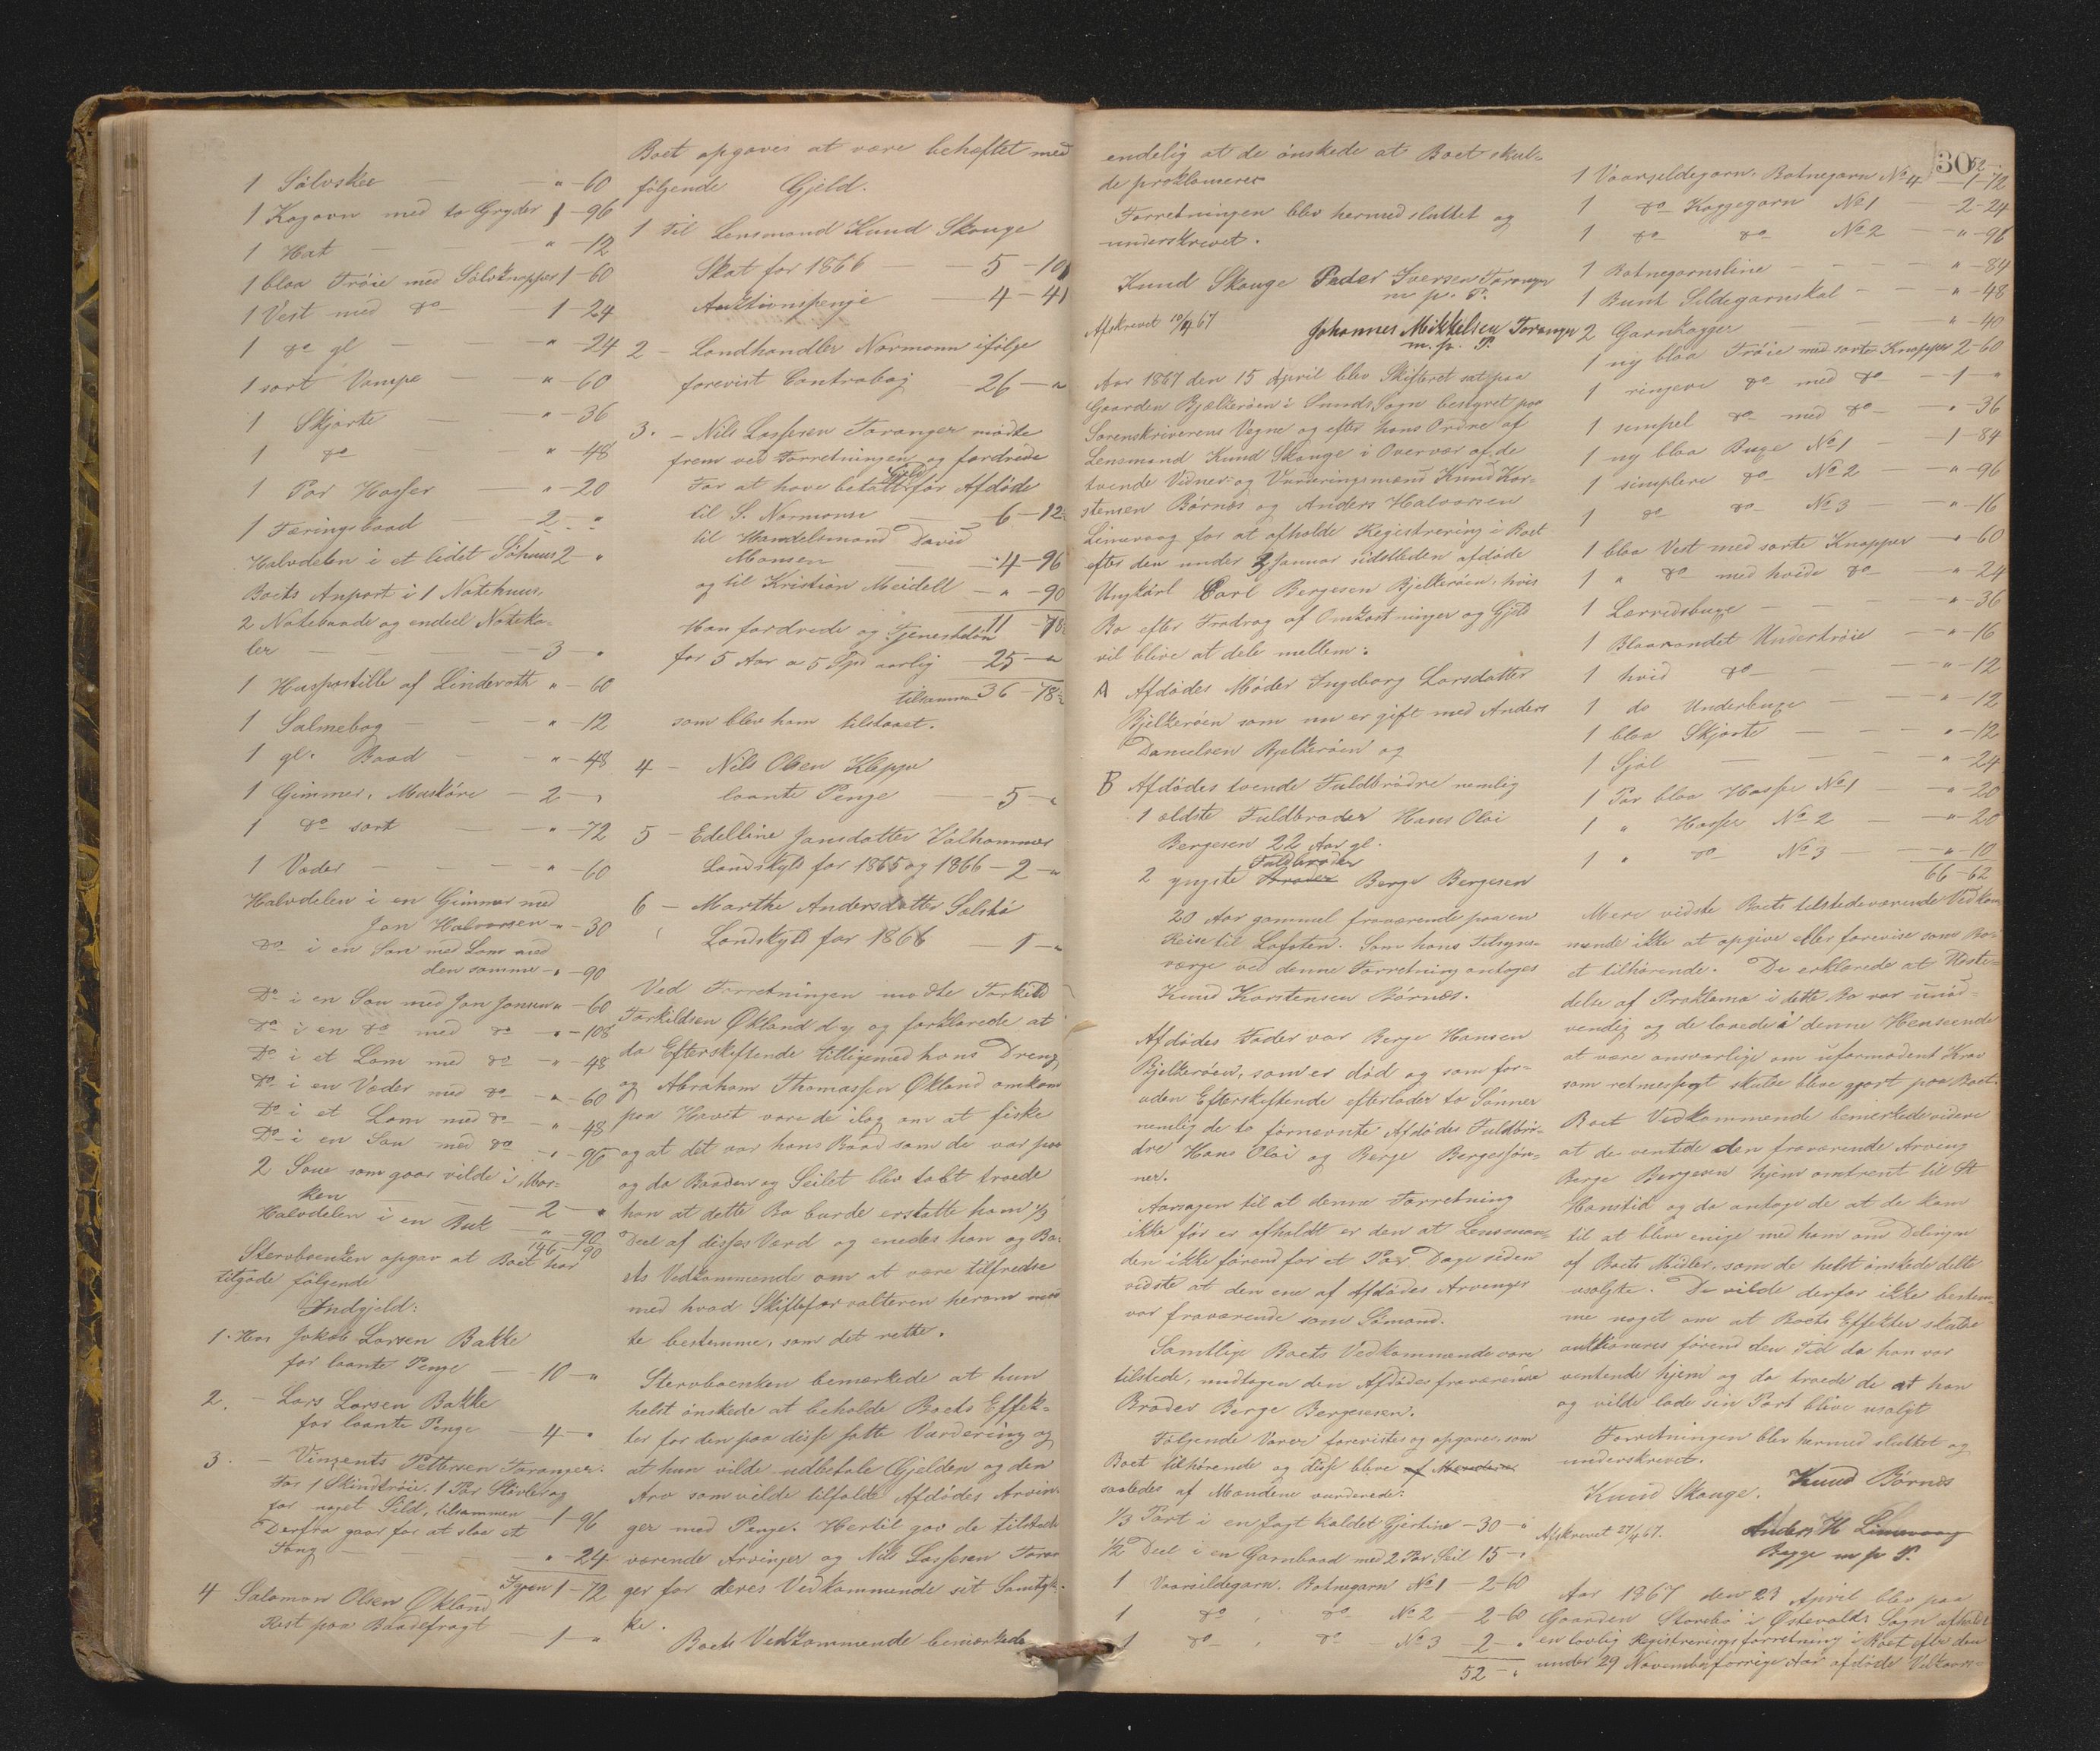 1 Sölvskee — " - 60
1 Kogovn med to Gryder 1 - 96
1 Hat — " - 12
1 blaa Tröie med Sölvknapper 1 - 60
1 Vest med do — 1 - 24
1 do gl — " - 24
1 sort Vampe — " - 60
1 Skjorte — " - 36
1 do — " - 48
1 Par Hosser — " - 20
1 Færingsbaad — 2 - "
Halvdelen i et lidet Söhuus 2 - "
Boets Anport i 1 Notehuus,
2 Notebaade og endeel Noteka-
ler — 3 - "
1 Huspostille af Linderoth " - 60
1 Salmebog — " - 12
1 gl. Baad — " - 48
1 Gimmer, Musköre — 2 - "
1 do sort — " - 72
1 Væder — " - 60
Halvdelen i en Gimmer med
Jon Halvorsen " - 30
Do i en Sou med Lam med
den samme - " - 90
Do i en Sou med Jon Jonsen " - 60
Do i en do med do " - 108
Do i et Lam med do " - 48
Do i en Væder med do " - 60
Do i et Lam med do " - 48
Do i en Sou med do " - 96
2 Soue som gaar vilde i Mar-
ken — 2 - "
Halvdelen i en Buk — " - 90
146 - 90
Stervboenken opgav at Boet har
tilgode følgende
Indgjeld:
1. Hos Jakob Larsen Bakke
for laante Penge — 10 - "
2. - Lars Larsen Bakke
for laante Penge — 4 - "
3. - Vinzents Pettersen Toranger.
For 1 Skindtröie, 1 Par Stövler og
for noget Sild, tilsammen — 1 - 96
Derfra gaar for at slaa et
Tong — " - 24
Igjen 1 - 72
4 Salamon Olsen Økland
Rest paa Baadefragt — 1 - "
Boet opgaves at være behæftet med
følgende Gjeld.
1 Til Lensmand Knud Skouge
Skat for 1866 — 5 - 10
Auktionspenge — 4 - 41
2 - Landhandler Normann ifølge
forevist Contrabog - 26 - "
3. - Nils Lassesen Toranger mødte
frem ved Forretningen og fordrede
For at have betalt Gjeld for Afdöde
til S. Normann — 6 - 12
til Handelsmand David
Monsen — 4 - 96
og til Kristian Meidell — " - 90
11 - 78
Han fordrede og Tjenestelön
for 5 Aar a 5 Spd aarlig — 25 - "
tilsammen 36 - 78
som blev ham tilstaaet.
4 - Nils Olsen Kleppe
laante Penge — 5 - "
5 - Edelline Jansdatter Valhammer
Landskyld for 1865 og 1866 - 2 - "
6 - Marthe Andersdatter Solstö
Landskyld for 1866 — 1 - "
Ved Forretningen mødte Torkild
Torkildsen Økland d y og forklarede at
da Efterskiftende tilligemed hans Dreng
og Abraham Thomassen Økland omkom
paa Havet vare de ilag om at fiske
og at det var hans Baad som de var paa
og da Baaden og Seilet blev tabt troede
han at dette Bo burde erstatte ham 1/3
Deel af disses Værd og enedes han og Bo-
ets Vedkommende om at være tilfredse
med hvad Skifteforvalteren herom maa
te bestemme, som det rette.
Stervboenken bemærkede at hun
helst önskede at beholde Boets Effek-
ter for den paa disse satte Vurdering og
at hun vilde udbetale Gjelden og den
Arv som vilde tilfalde Afdödes Arvin-
ger med Penge. Hertil gav de tilstede
værende Arvinger og Nils Lassesen Toran
ger for deres Vedkommende sit Samtyk-
ke.
Boets Vedkommende bemærkede
endelig at de önskede at Boet skul-
de proklameres
Forretningen blev hermed sluttet og
underskrevet.
Knud Skouge Peder Iversen Toranger
m. p. P.
Afskrevet 10/4 67 Johannes Mikkelsen Toranger
m. p. P.
Aar 1867 den 15 April blev Skifteret sat paa
Gaarden Bjelkeröen i Sunds Sogn bestyret paa
Sorenskriverens Vegne og efter hans Ordre af
Lensmand Knud Skouge i Overvær af de
tvende Vidner- og Vurderingsmænd Knud Kor-
stensen Börnæs og Anders Halvorsen
Limevaag for at afholde Registrering i Boet
efter den under 3 Januar sidstleden afdöde
Ungkarl Carl Bergesen Bjelkeröen, hvis
Bo efter Fradrag af Omkostninger og Gjeld
vil blive at dele mellem:
A Afdödes Moder Ingeborg Larsdatter
Bjelkeröen som nu er gift med Anders
Danielsen Bjelkeröen og
B Afdödes tvende Fuldbrödre nemlig
1 ældste Fuldbroder Hans Oloi
Bergesen 22 Aar gl.
2 yngste Fuldbroder Berge Bergesen
20 Aar gammel fraværende paa en
Reise til Lofoten. Som hans Tilsyns-
værge ved denne Forretning antages
Knud Korstensen Börnæs.
Afdödes Fader var Berge Hansen
Bjelkeröen, som er död og som for-
uden Efterskiftende efterlader to Sönner
nemlig de to førnævnte Afdödes Fuldbrö-
dre Hans Oloi og Berge Bergesön-
ner.
Aarsagen til at denne Forretning
ikke før er afholdt er den at Lensman-
den ikke førend for et Par Dage siden
vidste at den ene af Afdödes Arvinger
var fraværende som Sömand.
Samtlige Boets Vedkommende vare
tilstede, undtagen den Afdödes fraværende
Broder Berge Bergesen.
Følgende Varer forevistes og opgaves som
Boet tilhørende og disse bleve af Mændene
saaledes af Mændene vurderede:
1/3 Part i en Jagt kaldet Gjertine - 30 - "
1/2 Deel i en Garnbaad med 2 Par Seil 15 - "
1 Vaarsildegarn. Botnegarn No 1 - 2 - 60
1 do , do No 2 - 2 - 60
1 do , do No 3 - 2 - "
52 - "
30
52 "
1 Vaarsildegarn. Botnegarn No 4 - 1 - 72
1 do Kaggegarn No 1 — 2 - 24
1 do do No 2 — " - 96
1 Botnegarnsline — " - 84
1 Bunt Sildegarnskal — " - 48
2 Garnkagger — " - 40
1 ny blaa Tröie med sorte Knapper 2 - 60
1 ringere do med do - 1 - "
1 simpel do med do - " - 36
1 ny blaa Buxe No 1 - 1 - 84
1 simplere do No 2 — " - 96
1 do do No 3 — " - 16
1 blaa Vest med sorte Knapper — " - 60
1 " do med hvide do — " - 24
1 Lærredsbuxe — " - 36
1 Blaarandet Undertröie — " - 16
1 hvid do — " - 12
1 do Underbuxe — " - 12
1 blaa Skjorte — " - 12
1 Sjal — " - 24
1 Par blaa Hosser No 1 — " - 20
1 " Hosser No 2 — " - 20
1 " do No 3 — " - 10
66 - 62
Mere vidste Boets tilstedeværende Vedkom
mende ikke at opgive eller forevise som Bo-
et tilhørende. De erklærede at Udste-
delse af Proklama i dette Bo var unöd-
vendig og de lovede i denne Henseende
at være ansvarlige om uformodent Krav
som retmessigt skulde blive gjort paa Boet.
Boet Vedkommende bemærkede videre
at de ventede den fraværende Arving
Berge Bergesen hjem omtrent til St
Hanstid og da antoge de at de kom
til at blive enige med ham om Delingen
af Boets Midler, som de helst önskede delte
usolgte. De vilde derfor ikke bestem-
me noget om at Boets Effekter skulde
auktioneres førend den Tid da han var
ventende hjem og da troede de at han
og vilde lade sin Part blive usolgt
Forretningen blev hermed sluttet og
underskrevet.
Knud Skouge. Knud Börnæs
Afskrevet 27/4 67. Anders H Limevaag
Begge m p P.
Aar 1867 den 23 April blev paa
Gaarden Storebö i Østevolds Sogn afholdt
en lovlig Registreringsforretning i Boet efter den
under 29 November forrige Aar afdöde